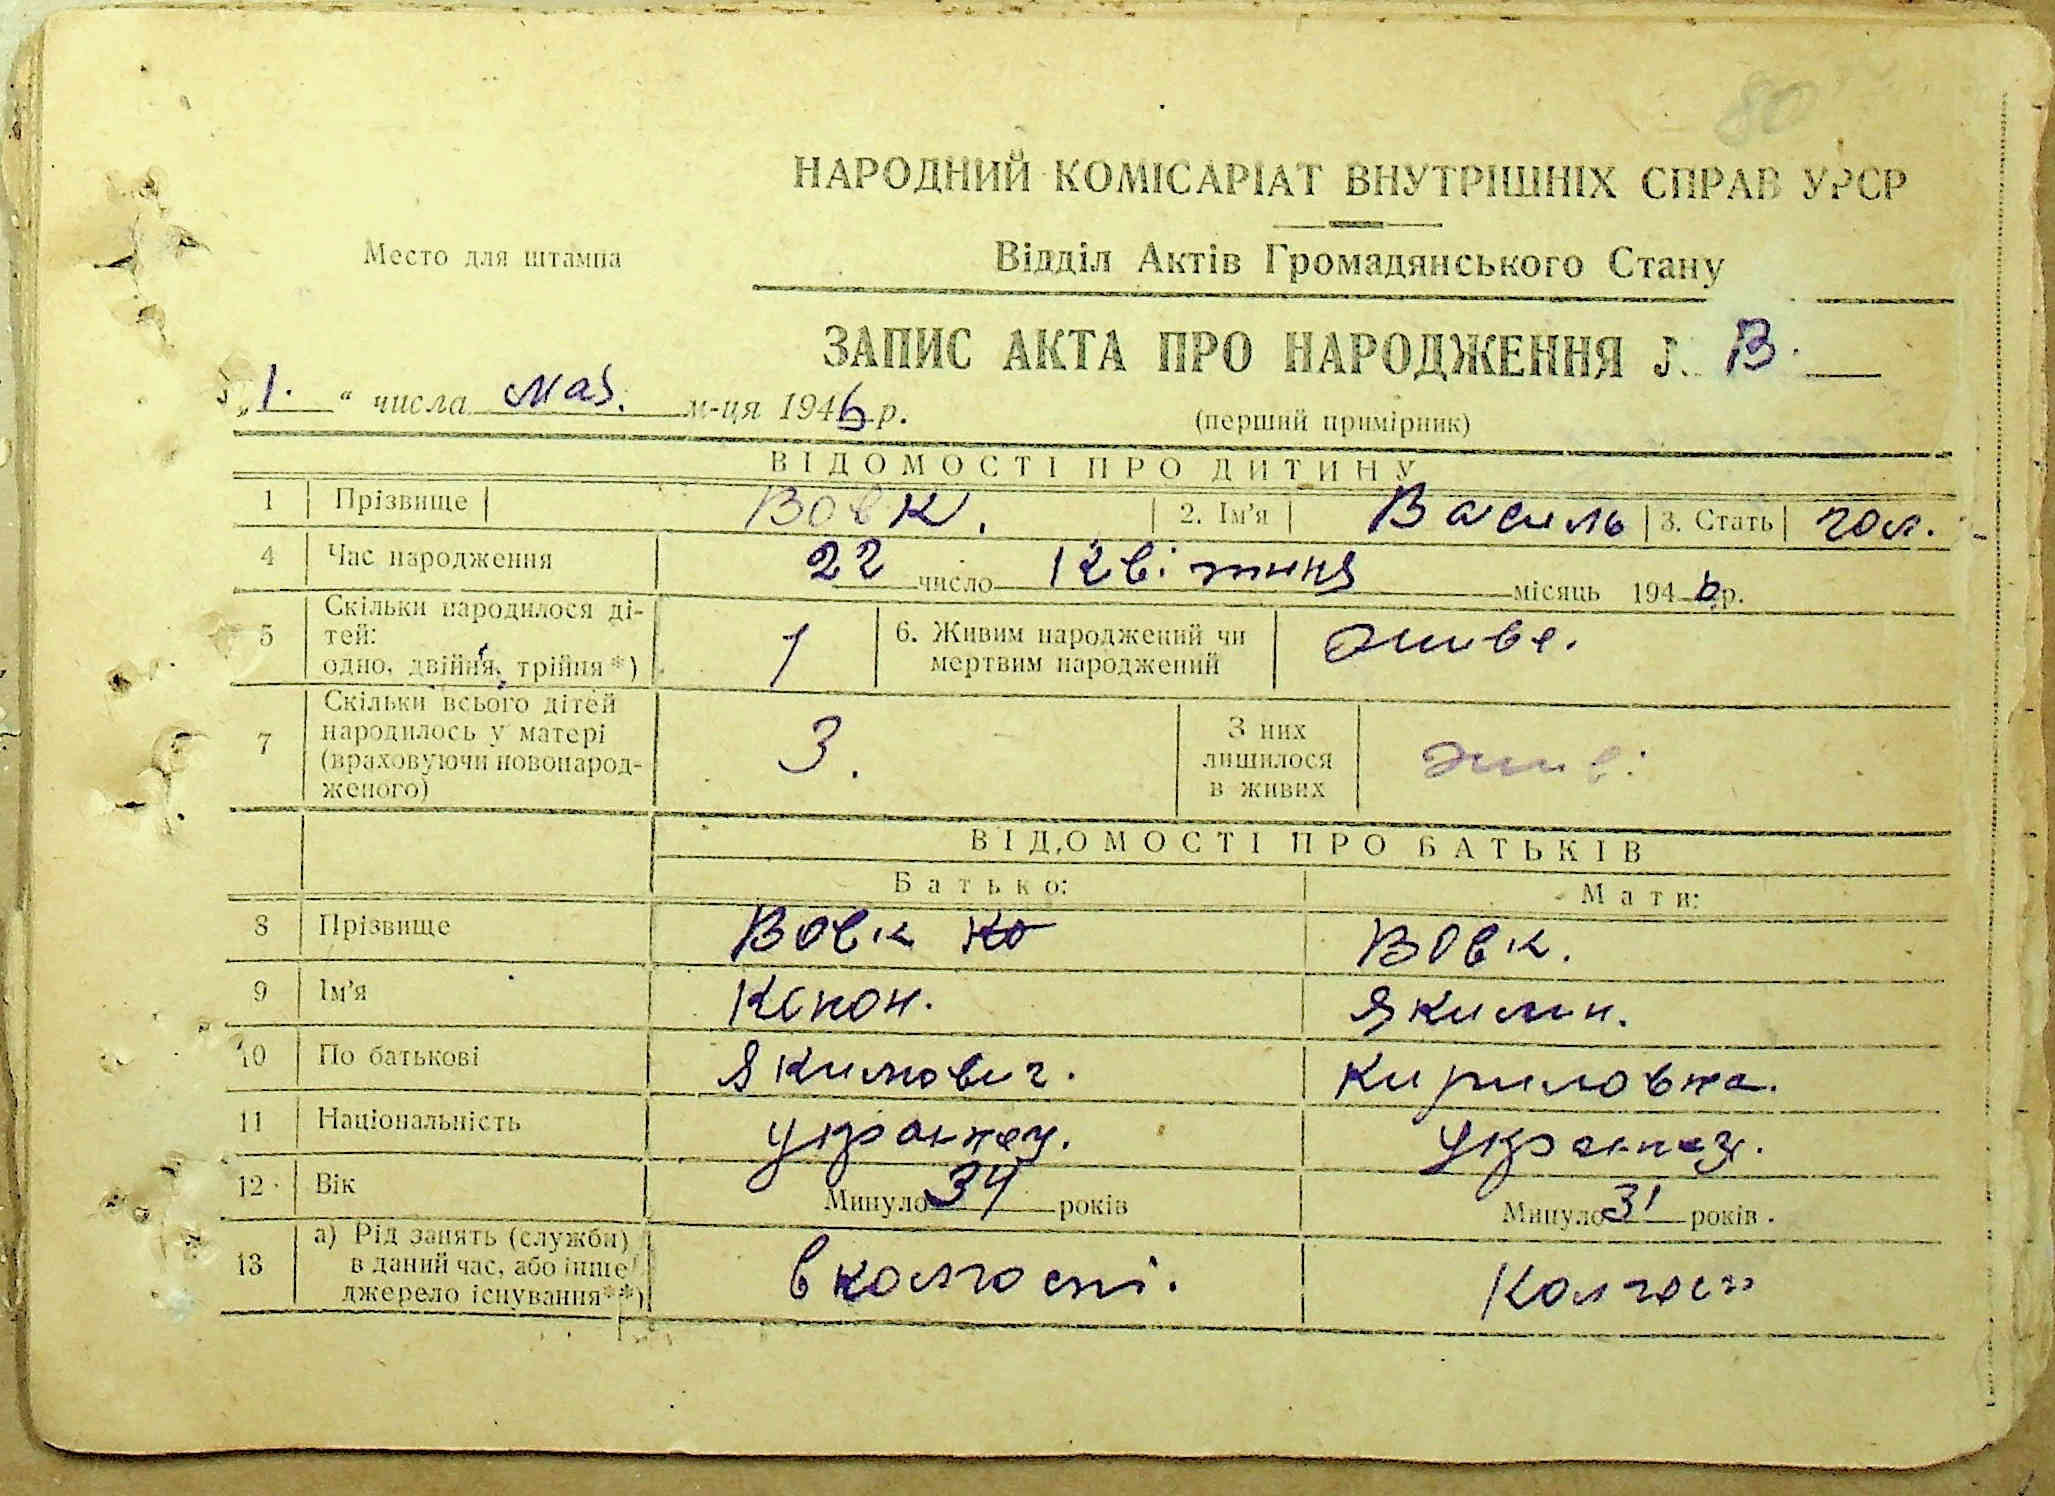 80
НАРОДНИЙ КОМІСАРІАТ ВНУТРІШНІХ СПРАВ УРСР
Место для штампа
Відділ Актів Громадянського Стану
ЗАПИС АКТА ПРО НАРОДЖЕННЯ №
„1.“ числа мая. м-ця 1946 р.
(перший примірник)
ВІДОМОСТІ ПРО ДИТИНУ
1 Прізвище Вовк. 2. Ім'я Василь 3. Стать чол.
4 Час народження 22 число квітння місяць 1946 р.
5 Скільки народилося ді-
тей:
одно, двійня, трійня*) 1
6. Живим народжений чи
мертвим народжений живе.
7 Скільки всього дітей
народилось у матері
(враховуючи новонарод-
женого) 3.
З них
лишилося
в живих живі
ВІДОМОСТІ ПРО БАТЬКІВ
Батько: Мати:
8 Прізвище Вовк Ко Вовк.
9 Ім'я Конон. Якилин.
10 По батькові Якимович. Кириловна.
11 Національність
12 Вік Минуло 34 років Минуло 31 років.
13 а) Рід занять (служби)
в даний час, або інше
джерело існування**) в колгоспі. Колгосп